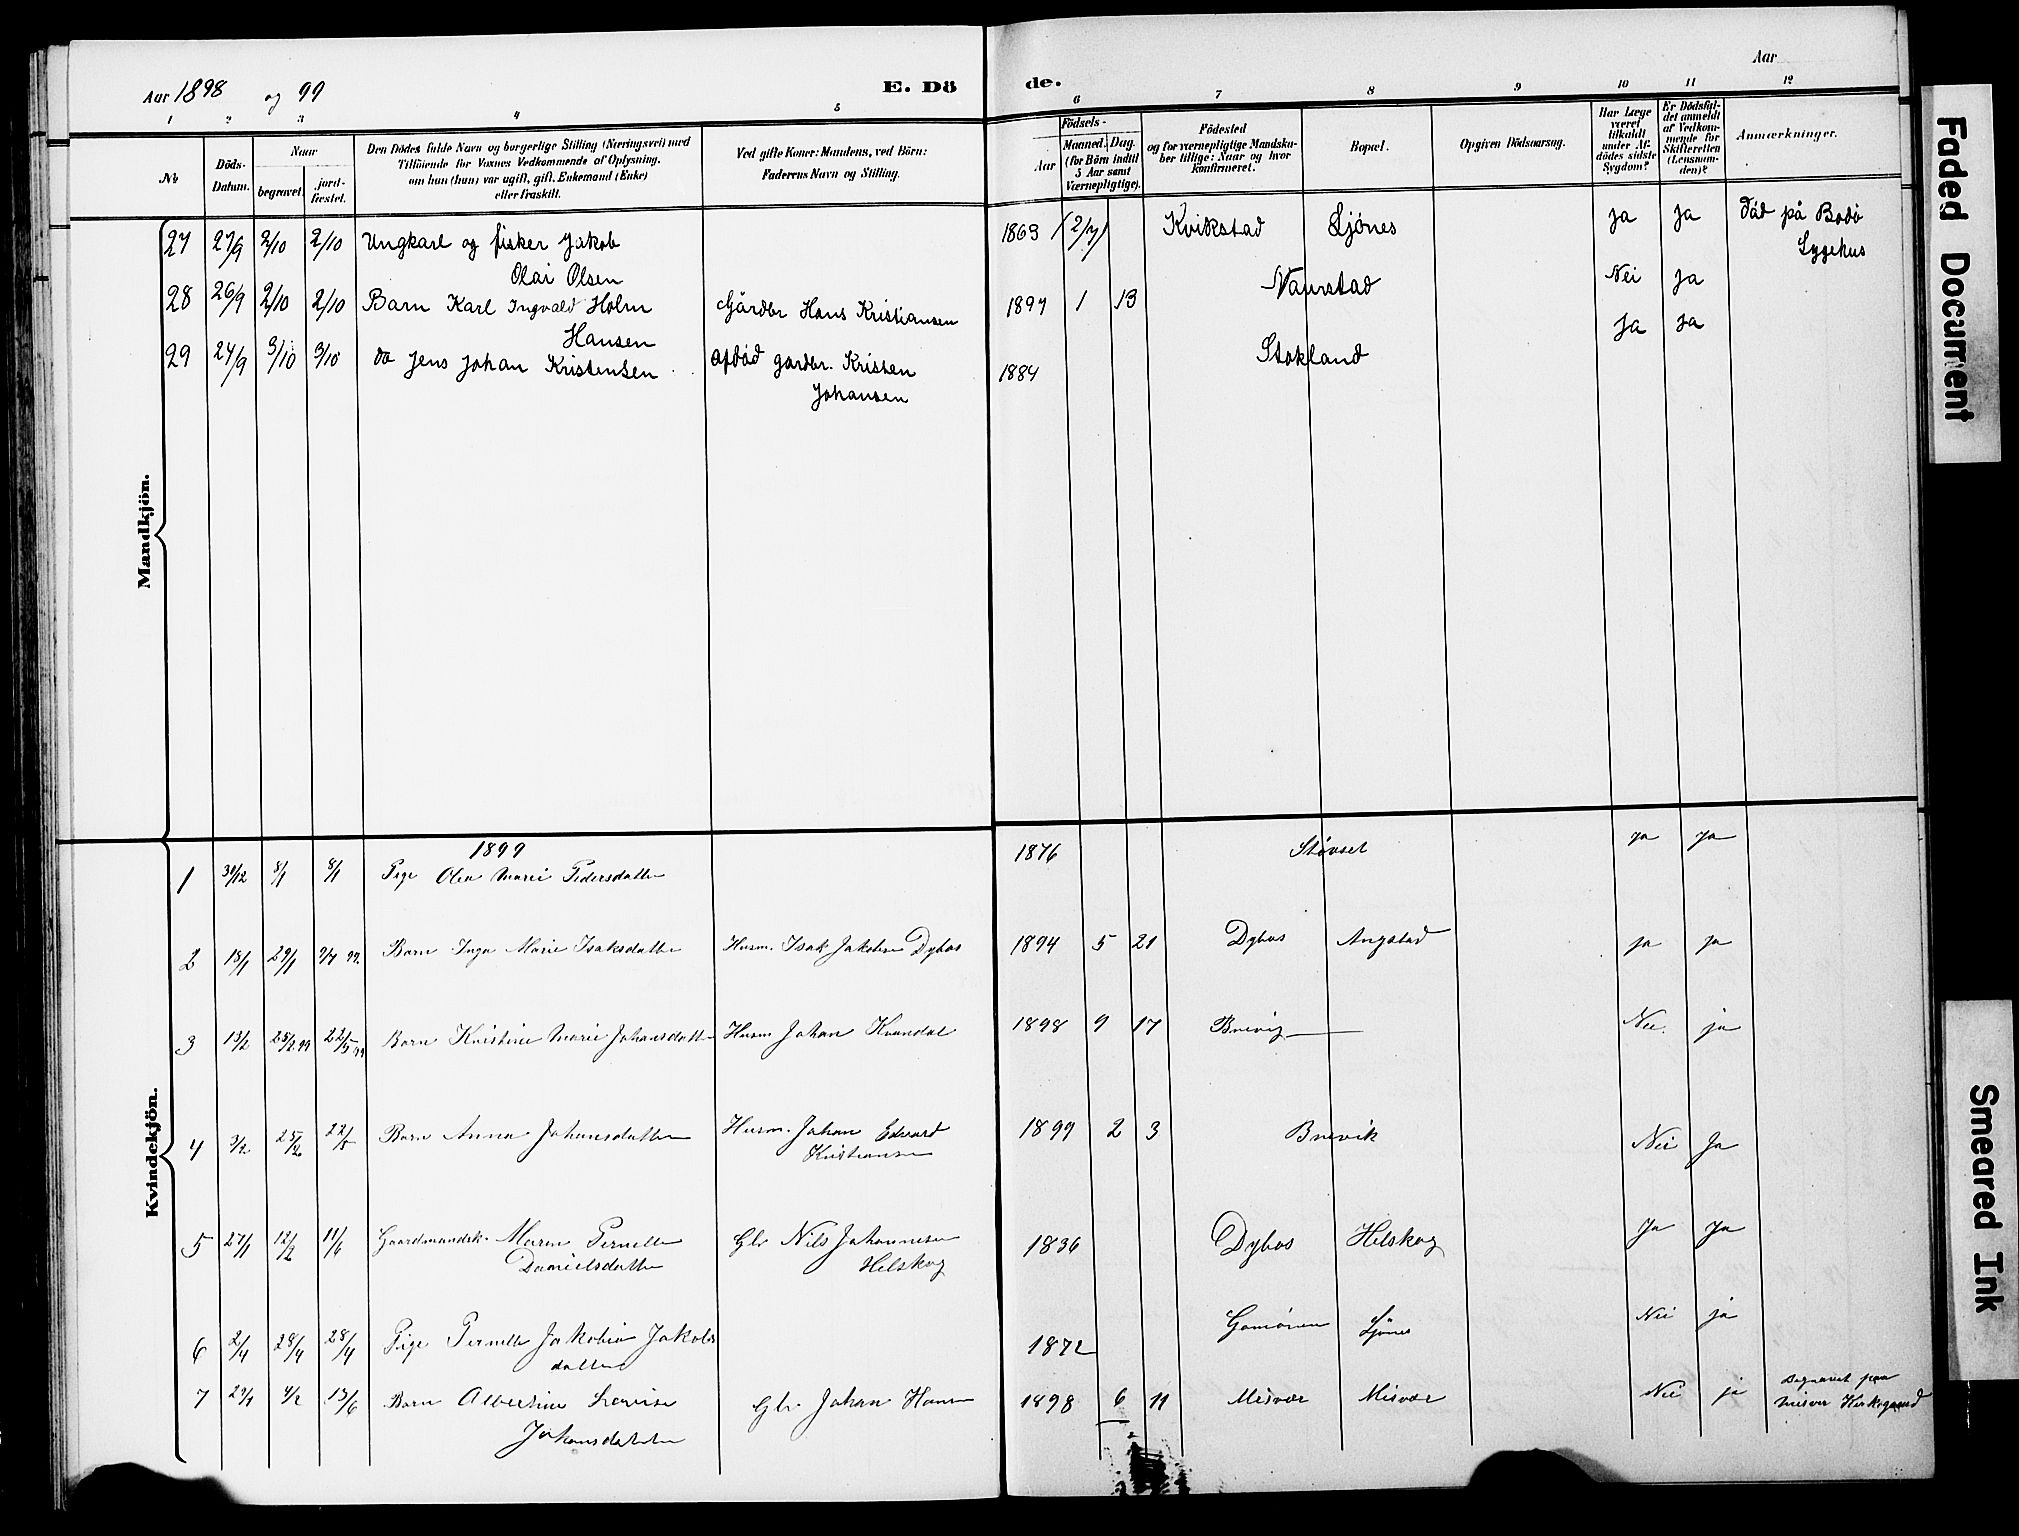 Aar 1898 og 99
E. Dö
de.
Aar
1 2 3 4 5 6 7 8 9 10 11 12
No
Döds-Datum.
Naar
begravet.
jord-fæstet.
Den Dödes fulde Navn og borgerlige Stilling (Næringsvei) med
Tilföiende for Voxnes Vedkommende af Oplysning,
om han (hun) var ugift, gift, Enkemand (Enke)
eller fraskilt.
Ved gifte Koner: Mandens, ved Börn:
Faderens Navn og Stilling.
Födsels-
Aar
Maaned. Dag.
(for Börn indtil
5 Aar samt
Værnepligtige).
Födested
og for værnepligtige Mandsku-
ber tillige: Naar og hvor
konfirmeret.
Bopæl.
Opgiven Dödsaarsag.
Har Læge
været
tilkaldt
under Af-
dödes sidste
Sygdom?
Er Dödsfal-
det anmeldt
af Vedkom-
mende for
Skifteretten
(Lensman-
den)?
Anmærkninger.
Mandkjön.
27 27/9 2/10 2/10 Ungkarl og fisker Jakob 1863 (2/7) Kvikstad Ljönes ja ja död på Bodö
Olai Olsen Sygehus
28 26/9 2/10 2/10 Barn Karl Ingvald Holm Gårdbr Hans Kristiansen 1897 1 13 Naurstad Nei ja
Hansen
29 24/9 3/10 3/10 do Jens Johan Kristensen Afdöd gardbr. Kristen 1884 Stokland Ja ja
Johansen
Kvindekjön.
1899
1 31/12 8/1 8/1 Pige Olea Marie Pedersdatter 1876 Stövset ja ja
2 13/1 29/1 99. Barn Inga Marie Isaksdatter Husm. Isak Jakobsen Dybos 1894 5 21 Dybos Angstad ja ja
3 13/2 25/2 99 22/5 99 Barn Kristine Marie Johansdatter Husm Johan Kvandal 1898 9 17 Brevig — Nei. ja
4 3/2 25/2 22/5 Barn Anna Johansdatter Husm. Johan Edvard 1899 2 3 Brevik Nei Ja
Kristiansen
5 27/1 12/2 11/6 Gaardmandsk. Maren Pernelle Gbr Nils Johannesen 1836 Dybos Helskog Ja Ja
Danielsdatter Helskog
6 2/4 28/4 28/4 Pige Pernelle Jakobia Jakobs 1872 Ljönes Nei ja
datter
7 29/1 4/2 13/6 Barn Albertine Lovise Gbr Johan Hansen 1898 6 11 Misvær Misvær Nei ja Begravet paa
Johansdatter Misvær Kirkegaard
Faded Document
Smeared Ink